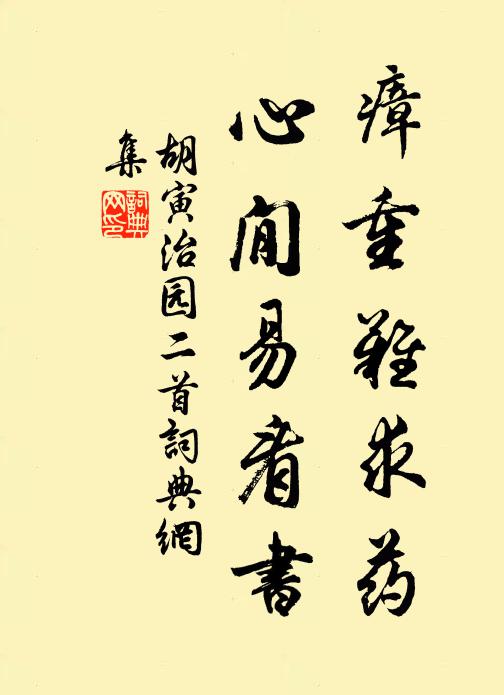 瘴重難求药
心閒易看書
胡寅治园二首詞典網
集
詞典
网印